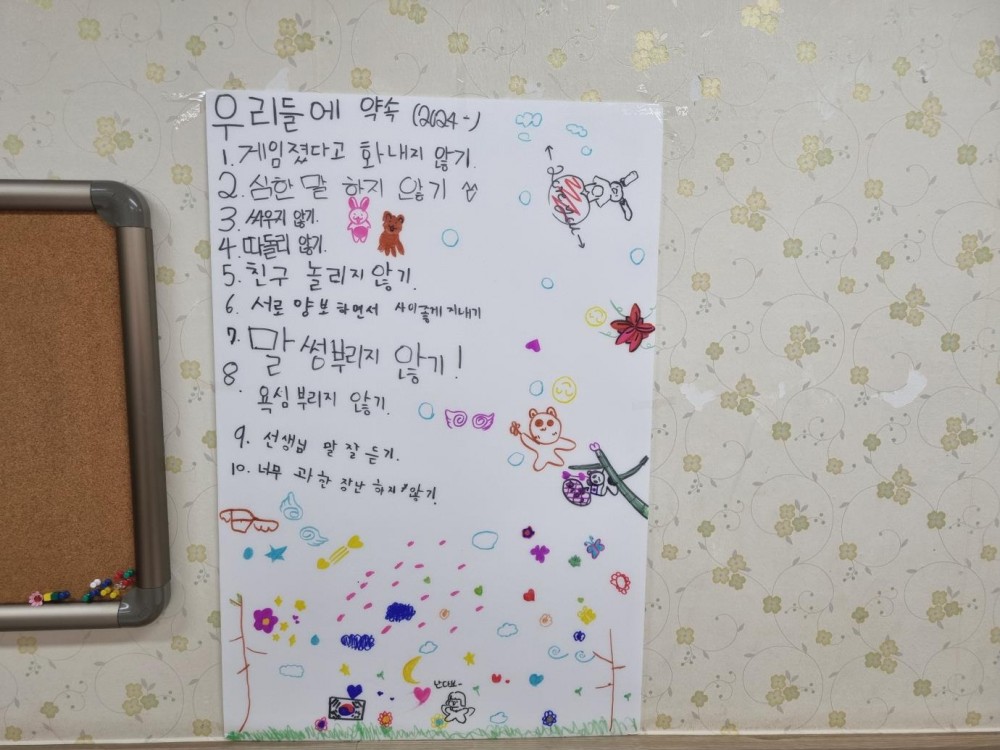 우리들에 약속 (2024-)
1. 게임졌다고 화내지 않기.
2. 심한 말 하지 않기
3. 싸우지 않기.
4. 따돌리 않기.
5. 친구 놀리지 않기.
6. 서로 양보하면서 사이좋게 지내기
7. 말썽부리지 않기!
8. 욕심부리지 않기.
9. 선생님 말 잘 듣기.
10. 너무 과한 장난 하지 않기!